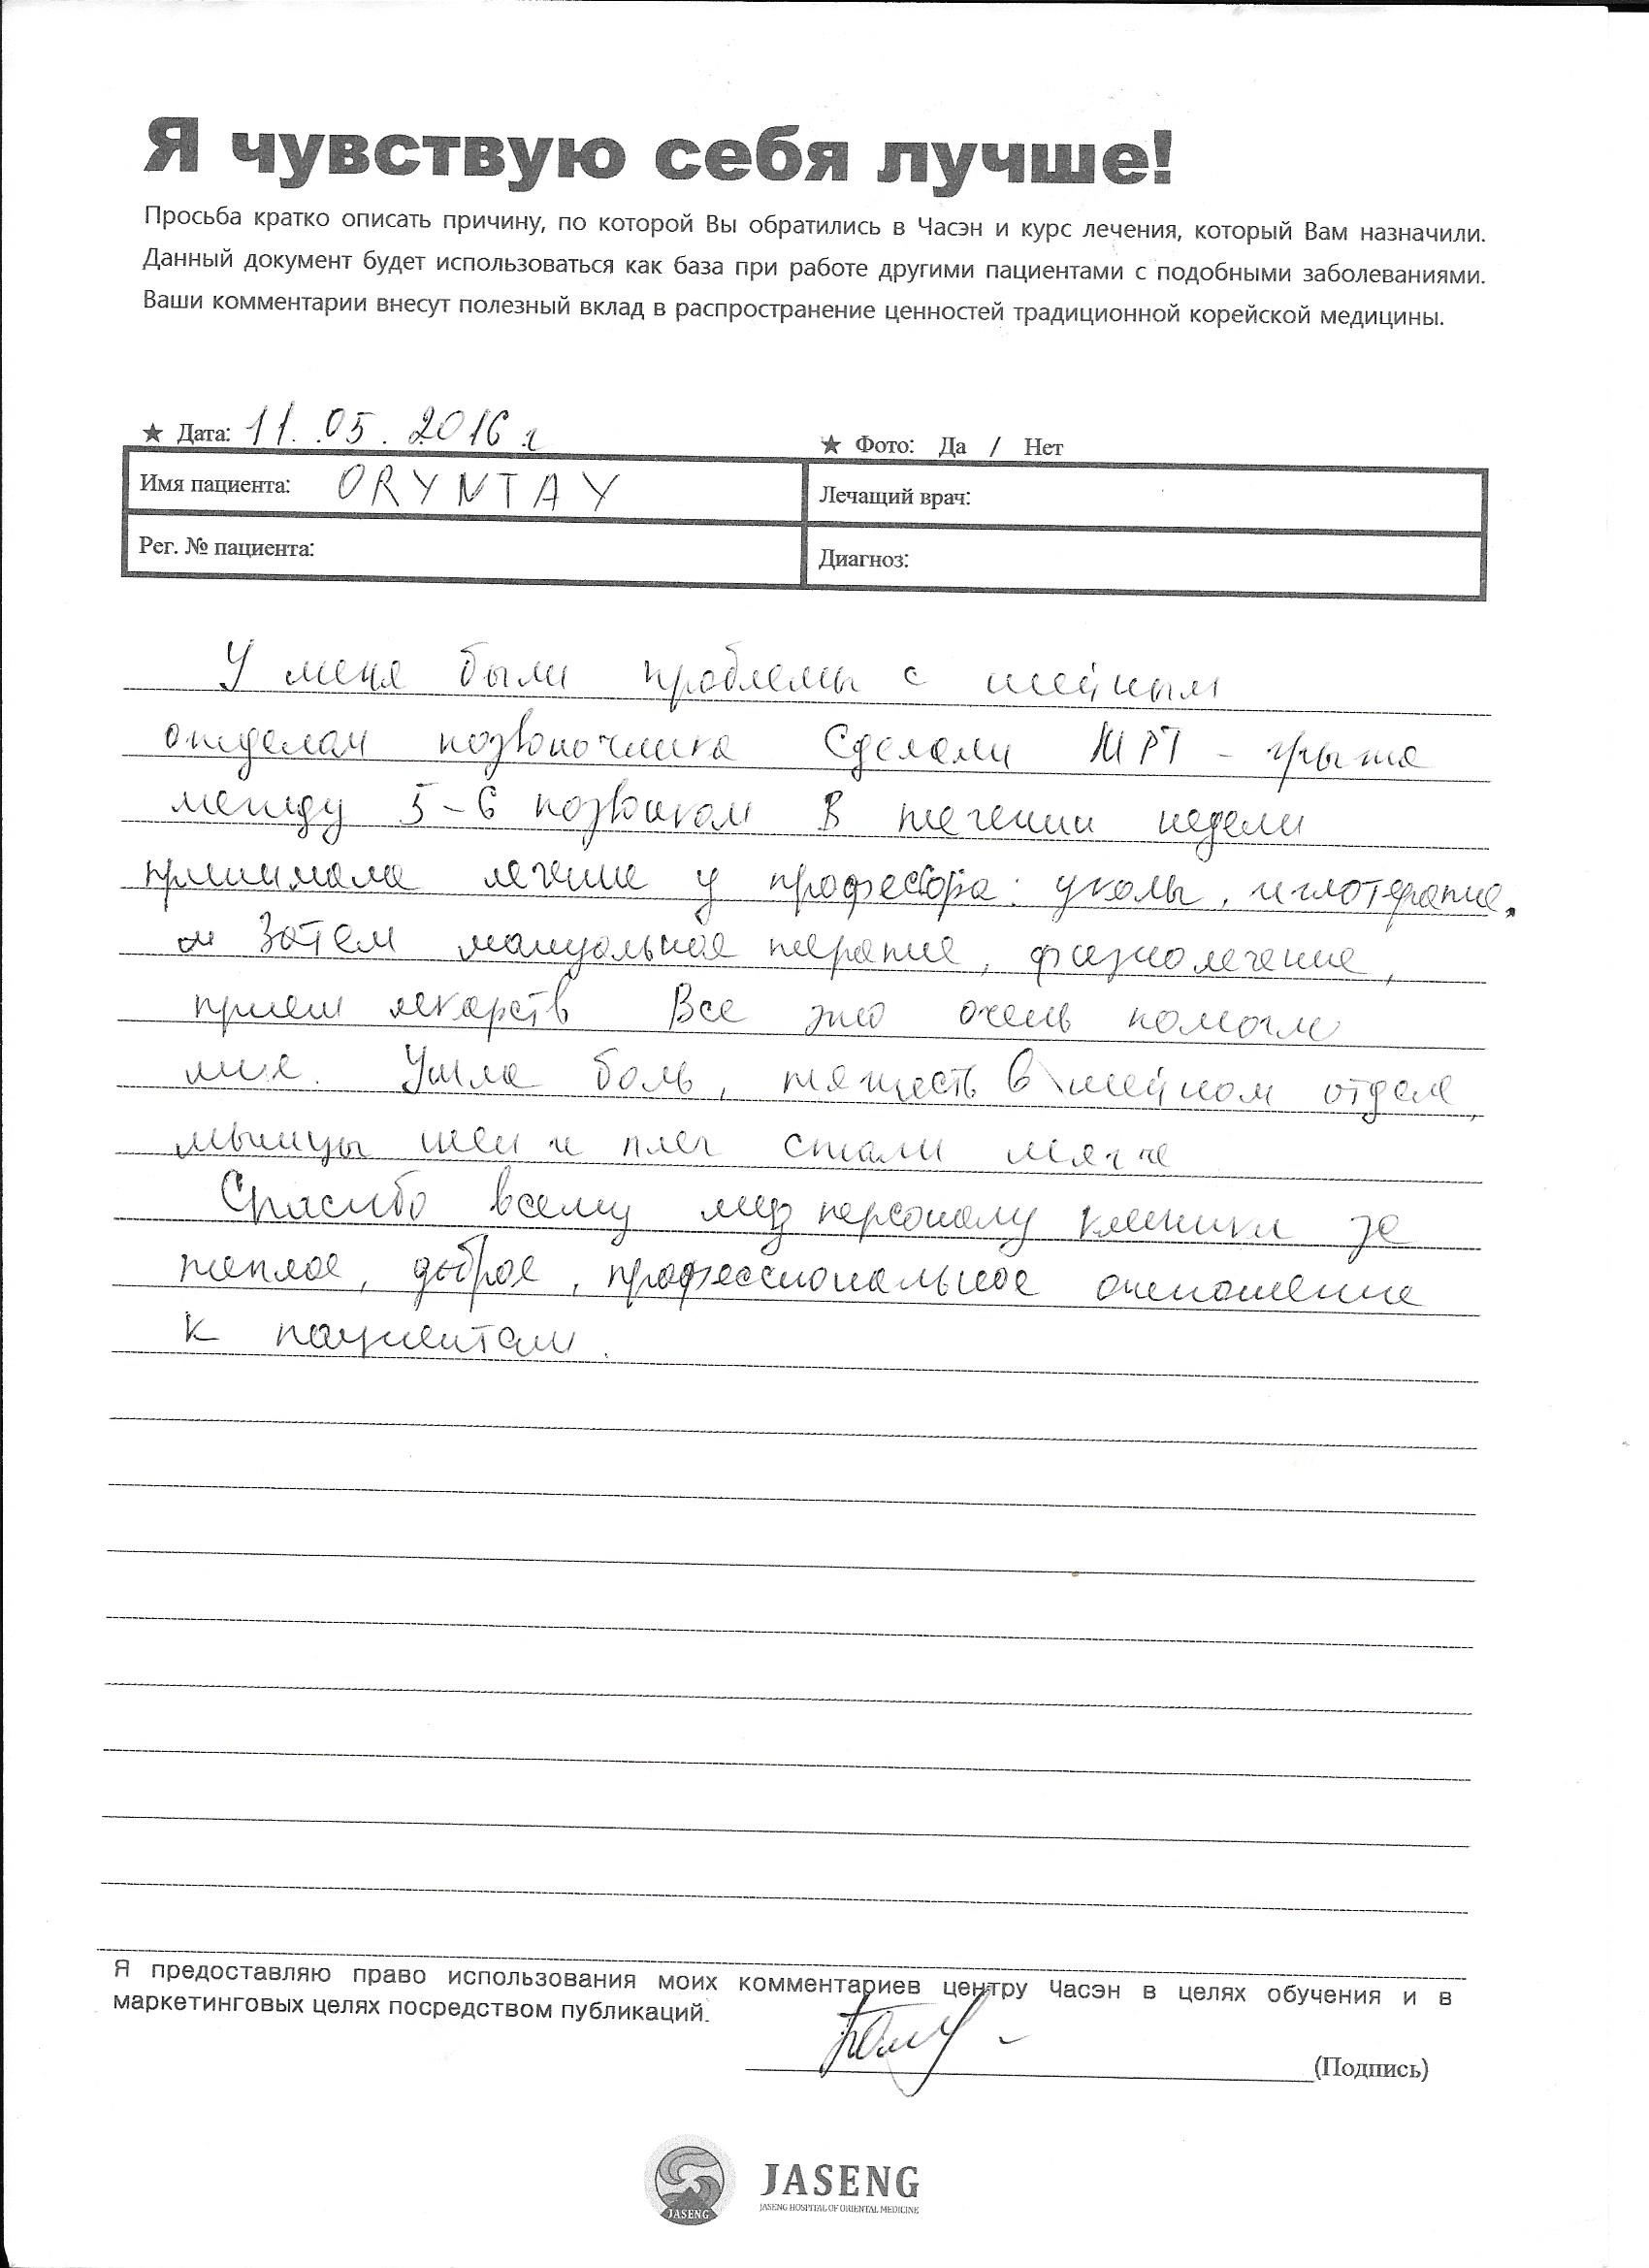 Я чувствую себя лучше!
Просьба кратко описать причину, по которой Вы обратились в Часэн и курс лечения, который Вам назначили.
Данный документ будет использоваться как база при работе другими пациентами с подобными заболеваниями.
Ваши комментарии внесут полезный вклад в распространение ценностей традиционной корейской медицины.
★ Дата: 11.05.2016 г ★ Фото: Да / Нет
Имя пациента: ORYNTAY Лечащий врач:
Рег. № пациента: Диагноз:
У меня были проблемы с шейным
отделом позвоночника Сделали МРТ - грыжа
между 5-6 позвонком В течении недели
принимала лечение у профессора: уколы, иглотерапия,
и затем мануальная терапия, физиолечение,
прием лекарств Все это очень помогли
мне. Ушла боль, тяжесть в шейном отделе,
мышцы шеи и плеч стали мягче
Спасибо всему мед персоналу клиники за
теплое, доброе, профессиональное отношение
к пациентам.
Я предоставляю право использования моих комментариев центру Часэн в целях обучения и в
маркетинговых целях посредством публикаций.
(Подпись)
JASENG
JASENG
JASENG HOSPITAL OF ORIENTAL MEDICINE